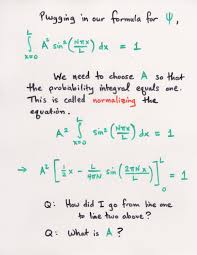 Plugging in our formula for ψ,
∫ₓ₌₀ᴸ A² sin²(Nπx/L) dx = 1
We need to choose A so that
the probability integral equals one.
This is called normalizing the
equation.
A² ∫₀ᴸ sin²(Nπx/L) dx = 1
→ A² [½x − L/4πN sin(2πNx/L)]₀ᴸ = 1
Q: How did I go from line one
to line two above?
Q: What is A?